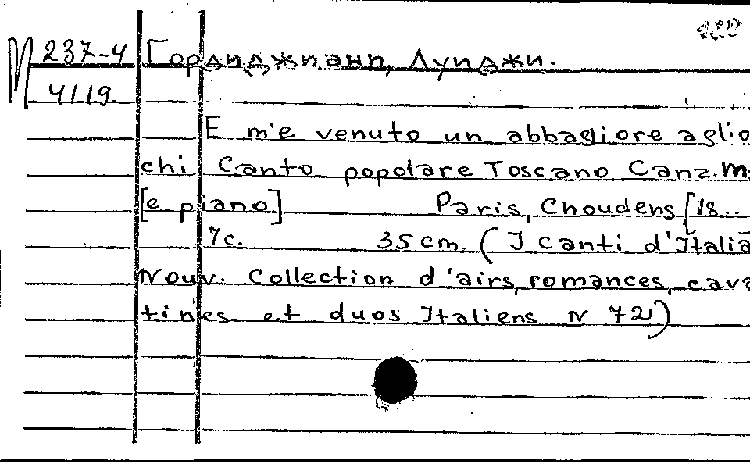 М 237-4
4119
Гордиджиани, Луиджи.
E m'e venuto un abbagliore aglio
chi Canto popolare Toscano Canz. M.
[e piano] Paris, Choudens [18...
7c. 35 cm. (I canti d'Italia
Nouv. Collection d'airs, romances, cava
tines et duos Italiens N 72)